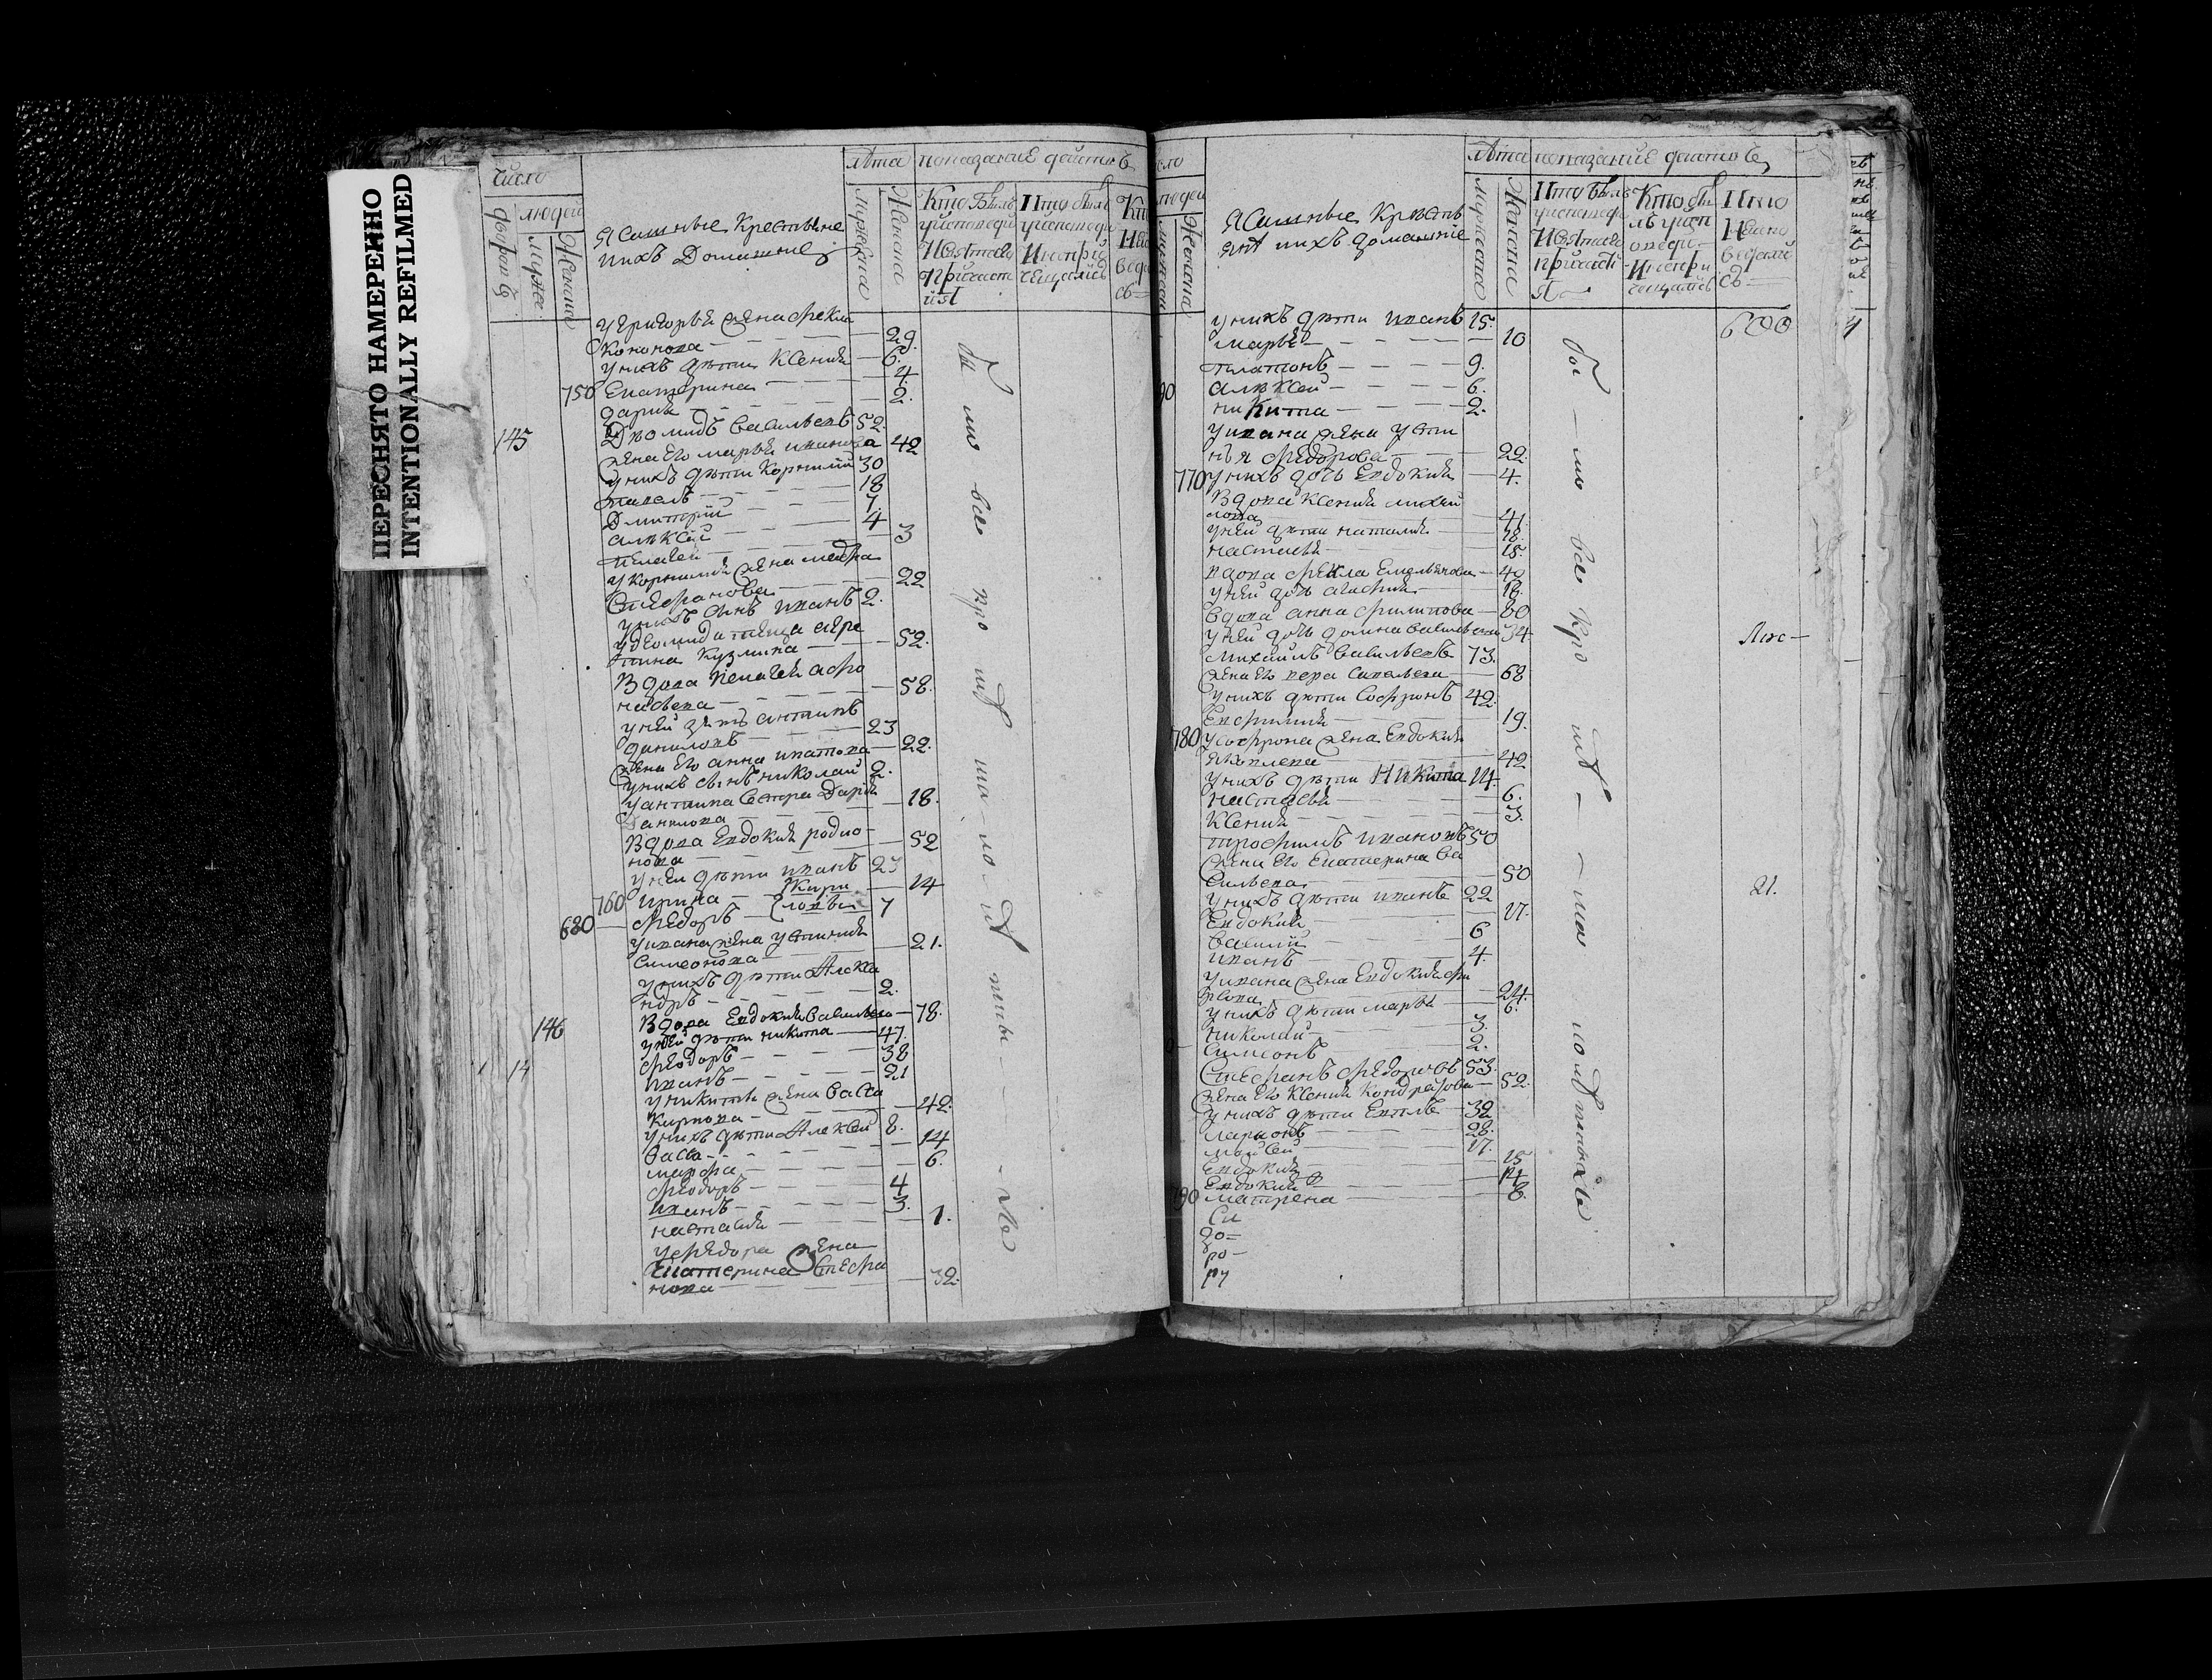 ПЕРЕСНЯТО НАМЕРЕННО
INTENTIONALLY REFILMED
число
людей
дворовъ
мужес
Женска
Ясашные Крестьяне
ихъ Домашние
лѣта
мужеска
Женска
показание действъ
Кто Былъ
уисповеди
Исвятаго
причаст
ия
Кто былъ
уисповеди
Инепри
чещались
Кт
Неис
вед
съ
уГригорья жена Фекла
Кононова 29.
уних дети Ксения 6.
750 Екатерина 4.
дарья 2.
145 Дио мидъ васильевъ 52.
жена его марья иванова 42
унихъ дѣти Корнилий 30
павелъ 18
Дмитрий 7.
алѣксѣй 4
пелагея 3
у Корнилия жена мавра
Стефанова 22
унихъ сынъ иванъ 2.
удеомида теща агра
пина Кузмина 52.
Вдова Пелагея афо
насьева 58.
уней зять антипъ
даниловъ 23
жена его анна 22.
унихъ сынъ николай 2.
уантипа сестра Дарья
Данилова 18.
Вдова Евдокия родио
нова 52
уней дѣти иванъ 23
760 ирина 14
620 Федоръ 7
уивана жена устиния
симеонова 21.
унихъ дѣти Алекса
ндръ 2.
146 Вдова Евдокия васильева 78.
уней дѣти никита 47.
Феодоръ 38
иванъ 21
уникиты жена васса
Карпова 42.
унихъ дѣти Алексей 8.
васса 14
марфа 6.
Феодоръ 4
иванъ 3.
настасия 1.
уфедора жена
Екатерина Стефа
нова 32.
бы ли все
сло
людей
мужеска
Женска
Ясашные Крестья
яне ихъ домашние
лѣта
мужеска
Женска
показание действъ
Кто Былъ
уисповеди
Исвятаго
причасти
я
Кто бы
лъ уисп
оведи
Инепри
чещались
Кто
Неиспо
ведалй
съ
унихъ дѣти иванъ 15.
марья 10
платонъ 9.
алѣксей 6.
ни Кита 2.
уивана жена усти
нья Федорова 22.
770 унихъ дочь Евдокия 4.
Вдова Ксения михай
лова 41.
уней дѣти наталия 18.
настасья 15.
вдова фекла Емельянова 40
уней дочь агафия 16.
вдова анна филипова 60
уней дочь домна васильева 34.
Михайлъ васильевъ 73.
жена его вера савельева 68
унихъ дѣти Софронъ 42.
Евфимия 19.
780 усофрона жена Евдокия
яковлева 42
унихъ дѣти Никита 14.
настасья 6.
Ксения 3.
трофимъ ивановъ 50
жена его Екатерина ва
сильева 50
унихъ дѣти иванъ 22
Евдокия 17.
василий 6
иванъ 4.
уивана жена Евдокия
24.
унихъ дѣти марья 6.
николай 3.
симеонъ 2.
Стефанъ Федоровъ 53.
жена его Ксения Кондратова 52.
унихъ дѣти 32
ларионъ 28.
мойсей 17.
Евдокия 15
Евдокия 14
790 матрена 8.
Си
до
ро
ру
бы ли все
600
21.